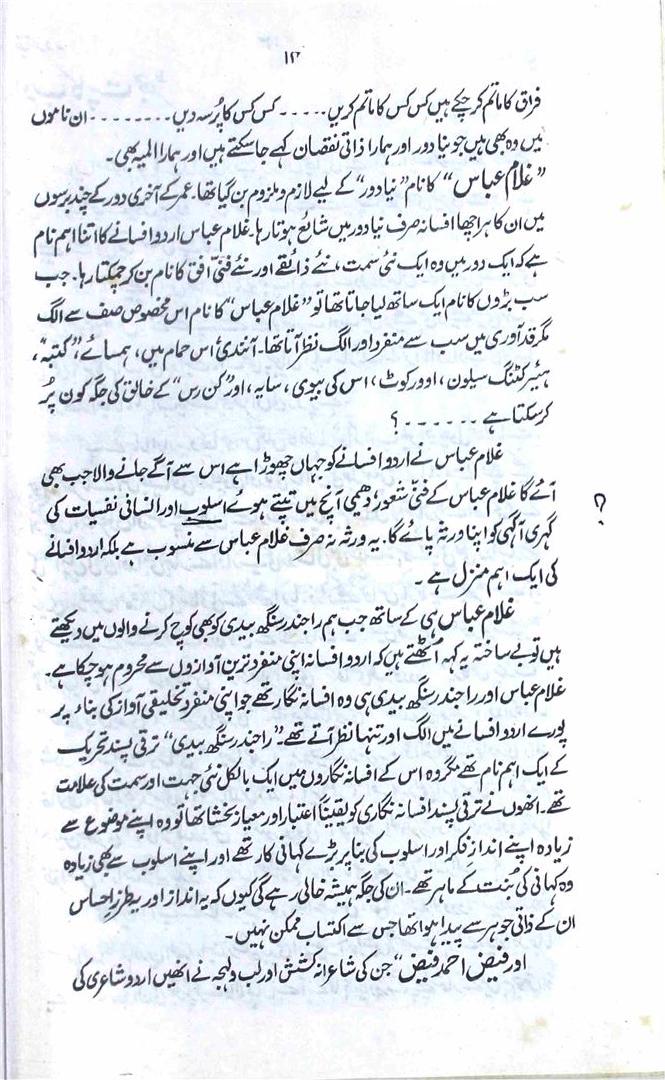 ۱۳
فراق کا ماتم کر چکے ہیں کس کس کا ماتم کریں ..... کس کس کا پُرسہ دیں ........ ان ناموں
میں وہ بھی ہیں جو نیا دور اور ہمارا ذاتی نقصان کہے جا سکتے ہیں اور ہمارا المیہ بھی۔
”غلام عباس“ کا نام ”نیا دور“ کے لیے لازم و ملزوم بن گیا تھا۔ عمر کے آخری دور کے چند برسوں
میں ان کا ہر اچھا افسانہ صرف نیا دور میں شائع ہوتا رہا۔ غلام عباس اردو افسانے کا اتنا اہم نام
ہے کہ ایک دور میں وہ ایک نئی سمت، نئے ذائقے اور نئے فنّی افق کا نام بن کر چمکتا رہا۔ جب
سب بڑوں کا نام ایک ساتھ لیا جاتا تھا تو ”غلام عباس“ کا نام اس مخصوص صف سے الگ
مگر قد آوری میں سب سے منفرد اور الگ نظر آتا تھا۔ آنندی، اس حمام میں، ہمسائے، ”کتبہ“،
ہئیر کٹنگ سیلون، اوور کوٹ، اس کی بیوی، سایہ، اور ”کن رس“ کے خالق کی جگہ کون پُر
کر سکتا ہے ......؟
غلام عباس نے اردو افسانے کو جہاں چھوڑا ہے اس سے آگے جانے والا جب بھی
آئے گا غلام عباس کے فنّی شعور، دھیمی آنچ میں تپتے ہوئے اسلوب اور انسانی نفسیات کی
؟
گہری آگہی کو اپنا ورثہ پائے گا۔ یہ ورثہ نہ صرف غلام عباس سے منسوب ہے بلکہ اردو افسانے
کی ایک اہم منزل ہے۔
غلام عباس ہی کے ساتھ جب ہم راجندر سنگھ بیدی کو بھی کوچ کرنے والوں میں دیکھتے
ہیں تو بے ساختہ یہ کہہ اُٹھتے ہیں کہ اردو افسانہ اپنی منفرد ترین آوازوں سے محروم ہو چکا ہے۔
غلام عباس اور راجندر سنگھ بیدی ہی وہ افسانہ نگار تھے جو اپنی منفرد تخلیقی آواز کی بناء پر
پورے اردو افسانے میں الگ اور تنہا نظر آتے تھے۔ ”راجندر سنگھ بیدی“ ترقی پسند تحریک
کے ایک اہم نام تھے مگر وہ اس کے افسانہ نگاروں میں ایک بالکل نئی جہت اور سمت کی علامت
تھے۔ انھوں نے ترقی پسند افسانہ نگاری کو یقیناً اعتبار اور معیار بخشا تھا تو وہ اپنے موضوع سے
زیادہ اپنے انداز فکر اور اسلوب کی بنا پر بڑے کہانی کار تھے اور اپنے اسلوب سے بھی زیادہ
وہ کہانی کی بُنت کے ماہر تھے۔ ان کی جگہ ہمیشہ خالی رہے گی کیوں کہ یہ انداز اور یہ طرزِ احساس
ان کے ذاتی جوہر سے پیدا ہوا تھا جس سے اکتساب ممکن نہیں۔
اور فیض احمد فیض“ جن کی شاعرانہ کشش اور لب و لہجہ نے انھیں اردو شاعری کی